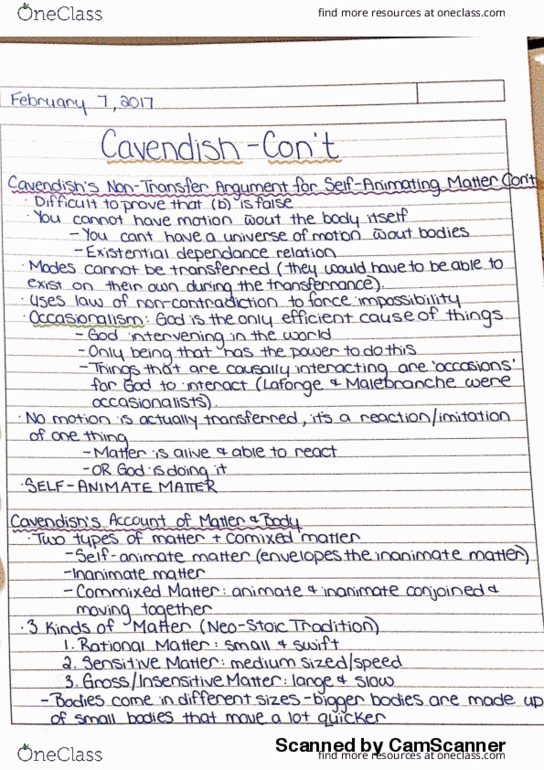 OneClass
find more resources at oneclass.com
February 7, 2017
Cavendish - Con't
Cavendish's Non-Transfer Argument for Self-Animating Matter Con't
· Difficult to prove that (b) is false
· You cannot have motion w̄out the body itself
- You cant have a universe of motion w̄out bodies
- Existential dependance relation
· Modes cannot be transferred (they would have to be able to
exist on their own during the transferrance).
· Uses law of non-contradiction to force impossibility
· Occasionalism: God is the only efficient cause of things
- God intervening in the world
- Only being that has the power to do this
- Things that are causally interacting are 'occasions'
for God to interact (Laforge & Malebranche were
occasionalists).
· No motion is actually transferred, it's a reaction/imitation
of one thing
- Matter is alive & able to react
- OR God is doing it
· SELF-ANIMATE MATTER
Cavendish's Account of Matter & Body
· Two types of matter + comixed matter
- Self-animate matter (envelopes the inanimate matter)
- Inanimate matter
- Commixed Matter: animate & inanimate conjoined &
moving together
· 3 Kinds of Matter (Neo-Stoic Tradition)
1. Rational Matter: small & swift
2. Sensitive Matter: medium sized/speed
3. Gross/Insensitive Matter: large & slow
- Bodies come in different sizes - bigger bodies are made up
of small bodies that move a lot quicker
Scanned by CamScanner
OneClass
find more resources at oneclass.com